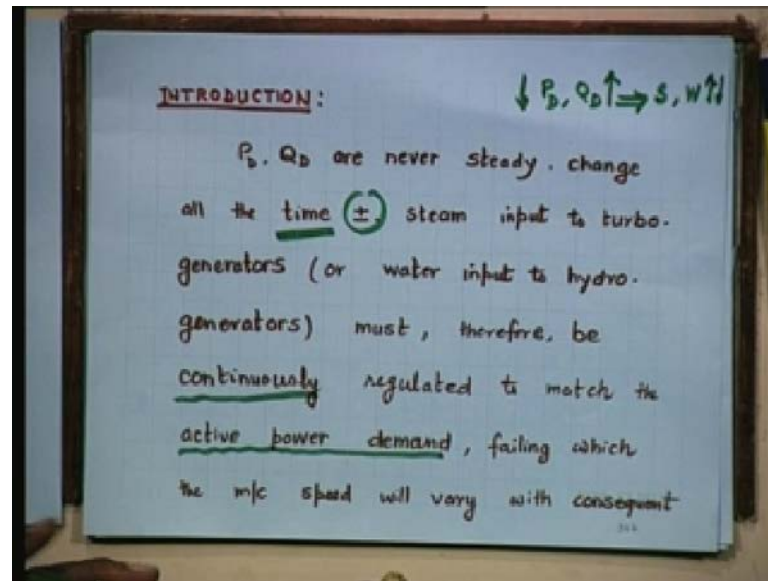 INTRODUCTION:
↓ P_D, Q_D ↑ ⇒ S, W ↑↓
P_D. Q_D are never steady. change
all the time (±) steam input to turbo-
generators (or water input to hydro-
generators) must, therefore, be
continuously regulated to match the
active power demand, failing which
the m/c speed will vary with consequent